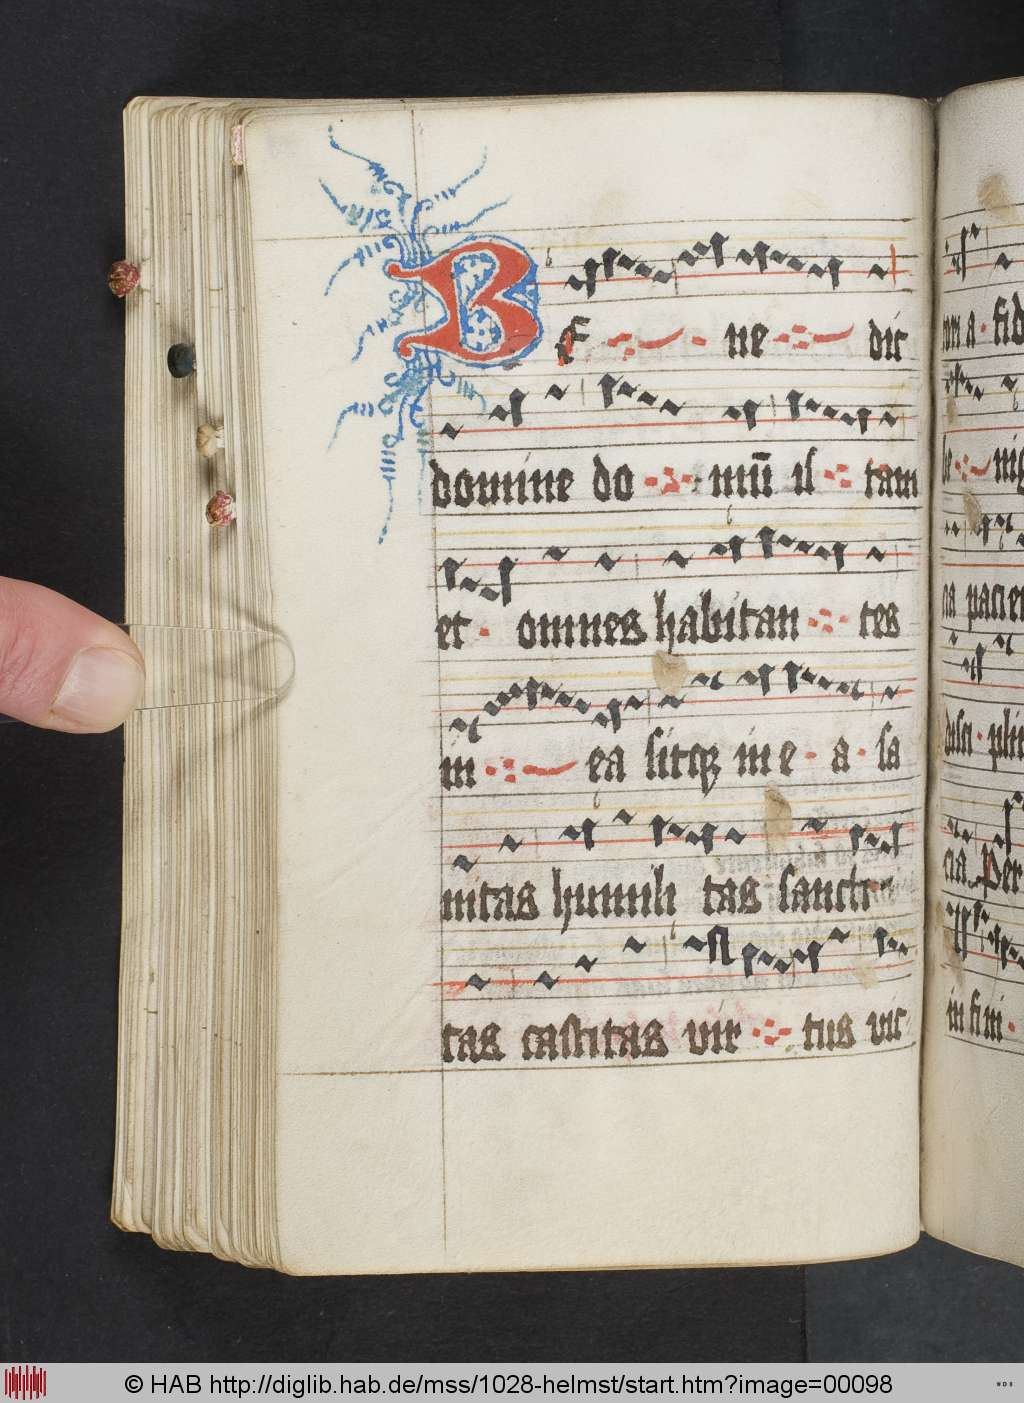 BE ne dic
domine do mū is tam
et omnes habitan tes
in ea sitqꝫ in e a sa
nitas humili tas sancti
tas castitas vir tus vic
on a fid
be nig
na pacien
disci plin
cia Per
in fi ni
© HAB http://diglib.hab.de/mss/1028-helmst/start.htm?image=00098